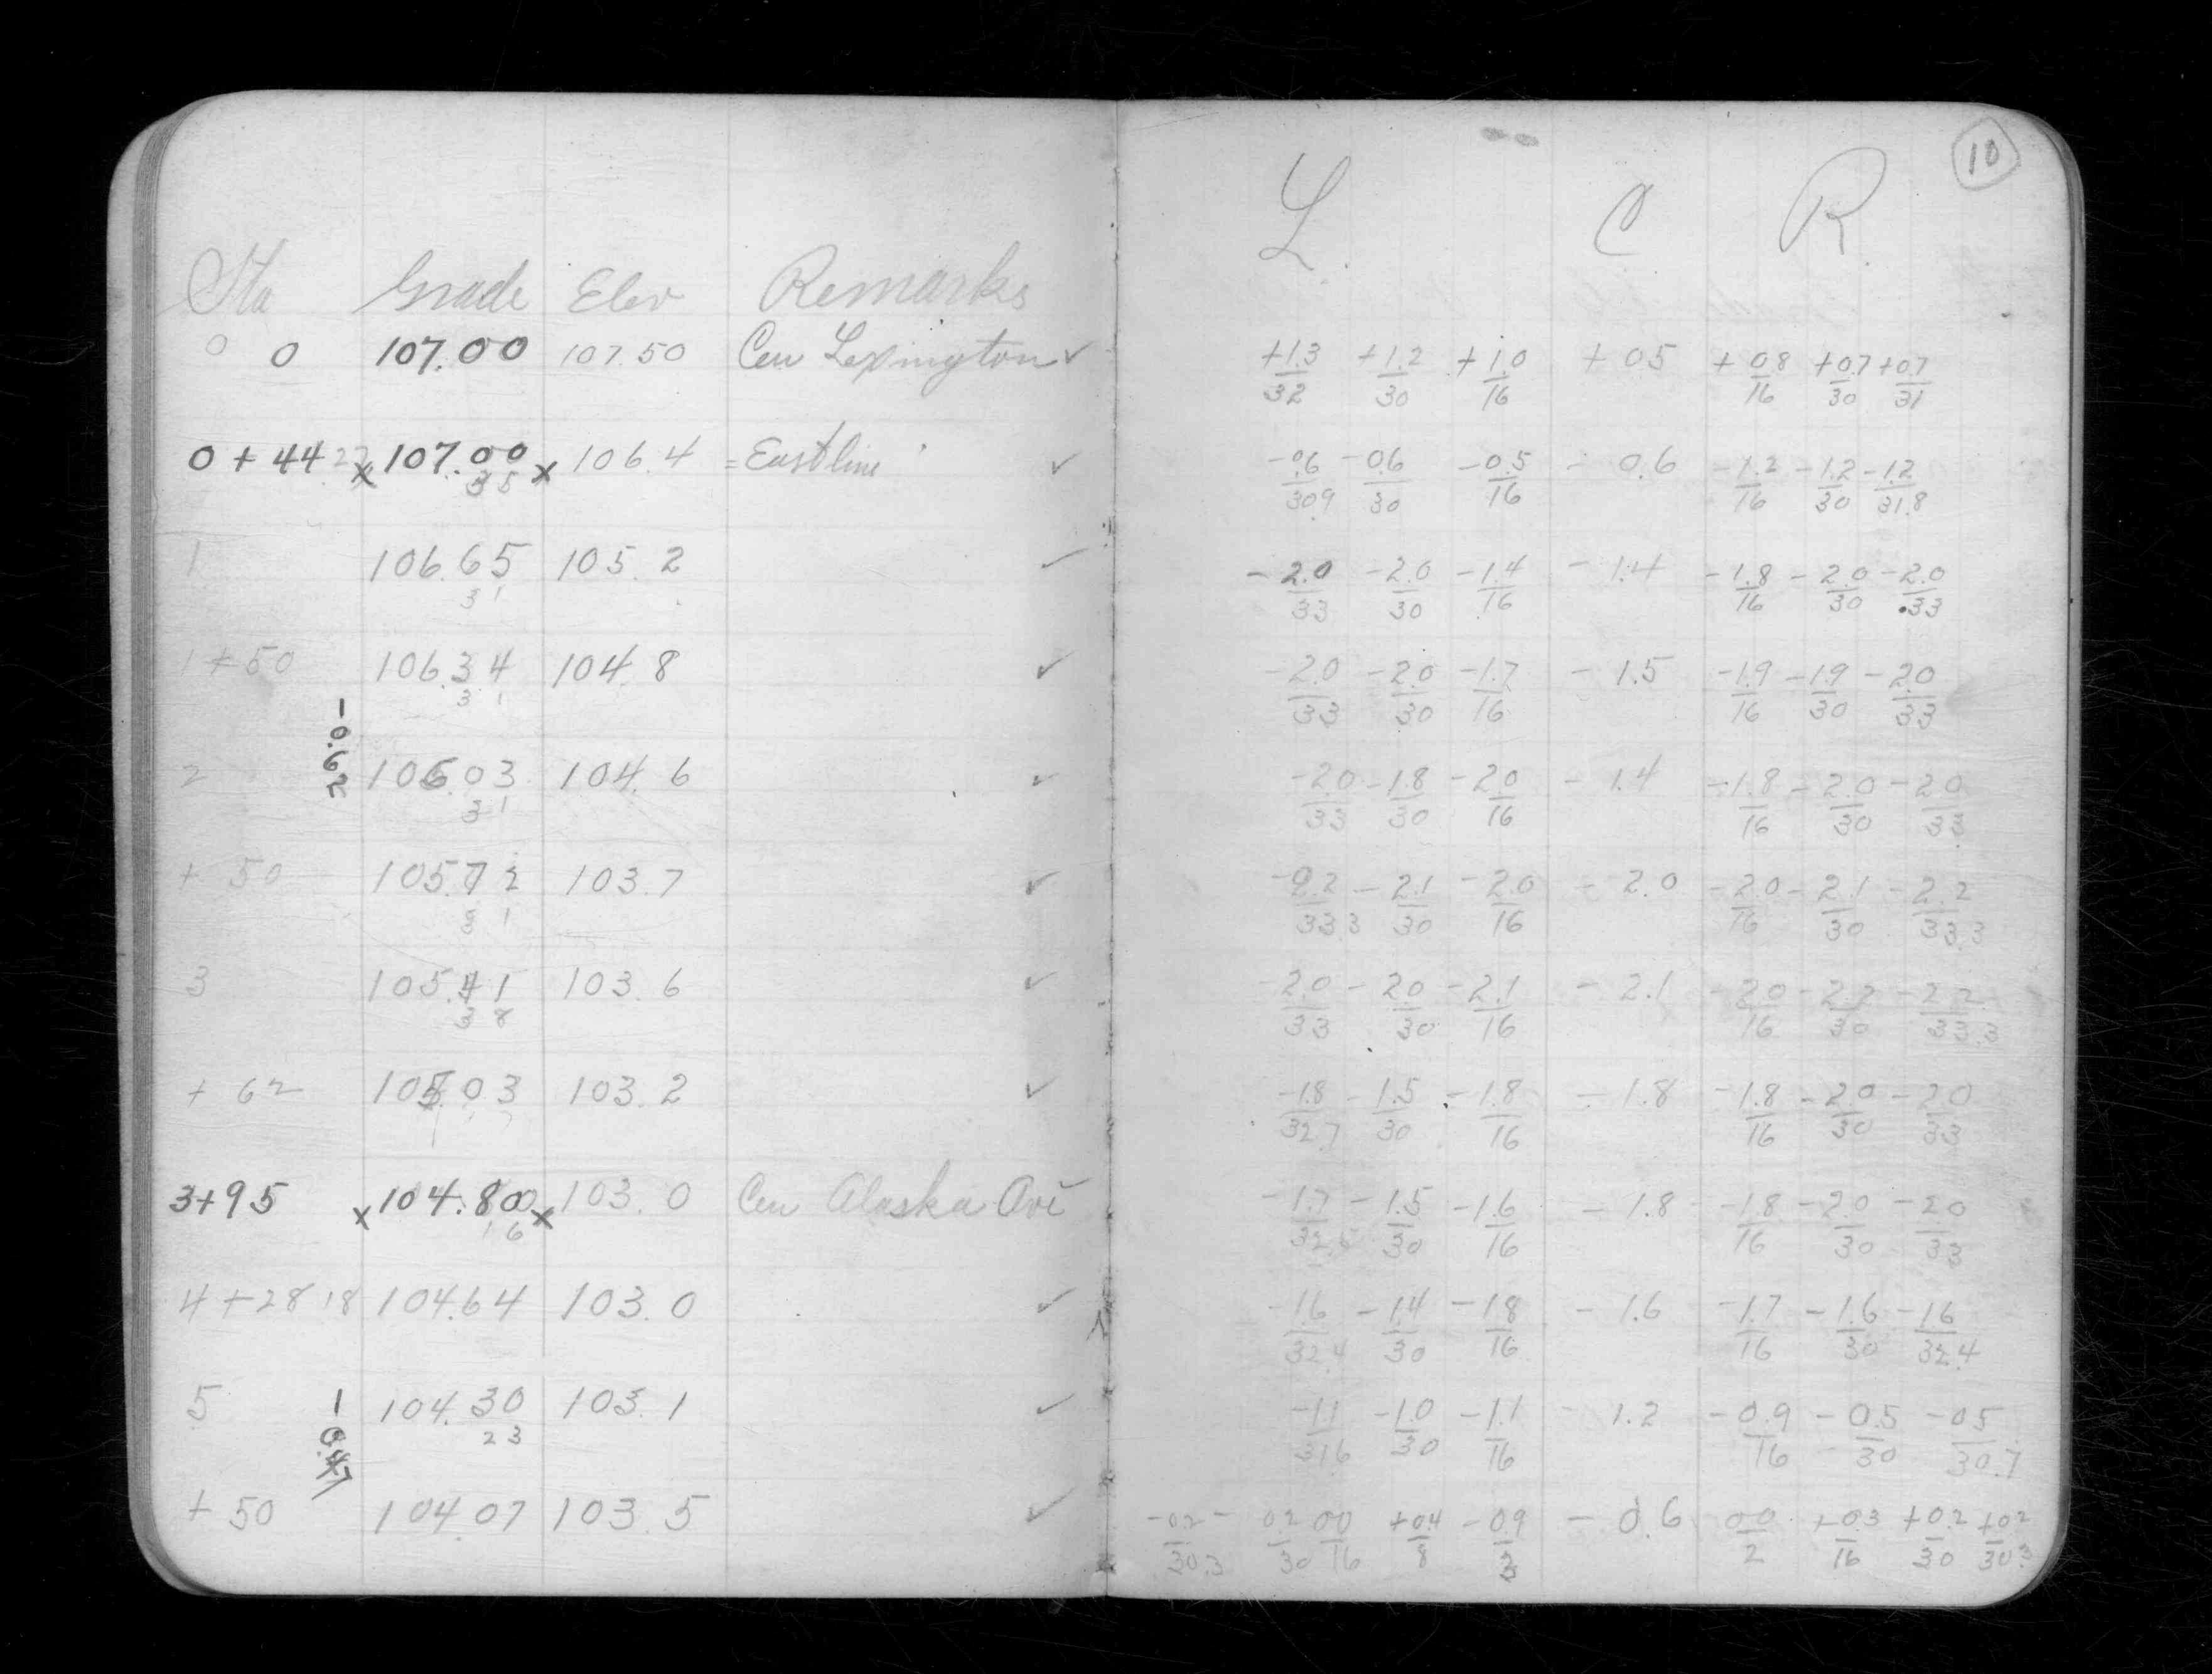 10
L. C R.
Sta Grade Elev Remarks
0 0 107.00 107.50 Cen Lexington ✓ +1.3/32 +1.2/30 +1.0/16 +0.5 +0.8/16 +0.7/30 +0.7/31
0+44.27 x 107.00 x 106.4 = East line " ✓ -0.6/30.9 -0.6/30 -0.5/16 - 0.6 -1.2/16 -1.2/30 -1.2/31.8
35
1 106.65 105.2 ✓ -2.0/33 -2.0/30 -1.4/16 - 1.4 -1.8/16 -2.0/30 -2.0/33
31
1+50 106.34 104.8 ✓ -2.0/33 -2.0/30 -1.7/16 - 1.5 -1.9/16 -1.9/30 -2.0/33
31
-0.62
2 106.03 104.6 ✓ -2.0/33 -1.8/30 -2.0/16 - 1.4 -1.8/16 -2.0/30 -2.0/33
31
+ 50 105.72 103.7 ✓ -2.2/33.3 -2.1/30 -2.0/16 - 2.0 -2.0/16 -2.1/30 -2.2/33.3
31
3 105.41 103.6 ✓ -2.0/33 -2.0/30 -2.1/16 - 2.1 -2.0/16 -2.2/30 -2.2/33.3
38
+ 62 105.03 103.2 ✓ -1.8/32.7 -1.5/30 -1.8/16 - 1.8 -1.8/16 -2.0/30 -2.0/33
3+95 x 104.80 x 103.0 Cen Alaska Ave -1.7/32.5 -1.5/30 -1.6/16 - 1.8 -1.8/16 -2.0/30 -2.0/33
16
4+28.18 104.64 103.0 ✓ -1.6/32.4 -1.4/30 -1.8/16 - 1.6 -1.7/16 -1.6/30 -1.6/32.4
5 104.30 103.1 ✓ -1.1/31.6 -1.0/30 -1.1/16 - 1.2 -0.9/16 -0.5/30 -0.5/30.7
23
+ 50 104.07 103.5 ✓ -0.2/30.3 -0.2/30 0.0/16 +0.4/8 -0.9/3 - 0.6 0.0/2 +0.3/16 +0.2/30 +0.2/30.3